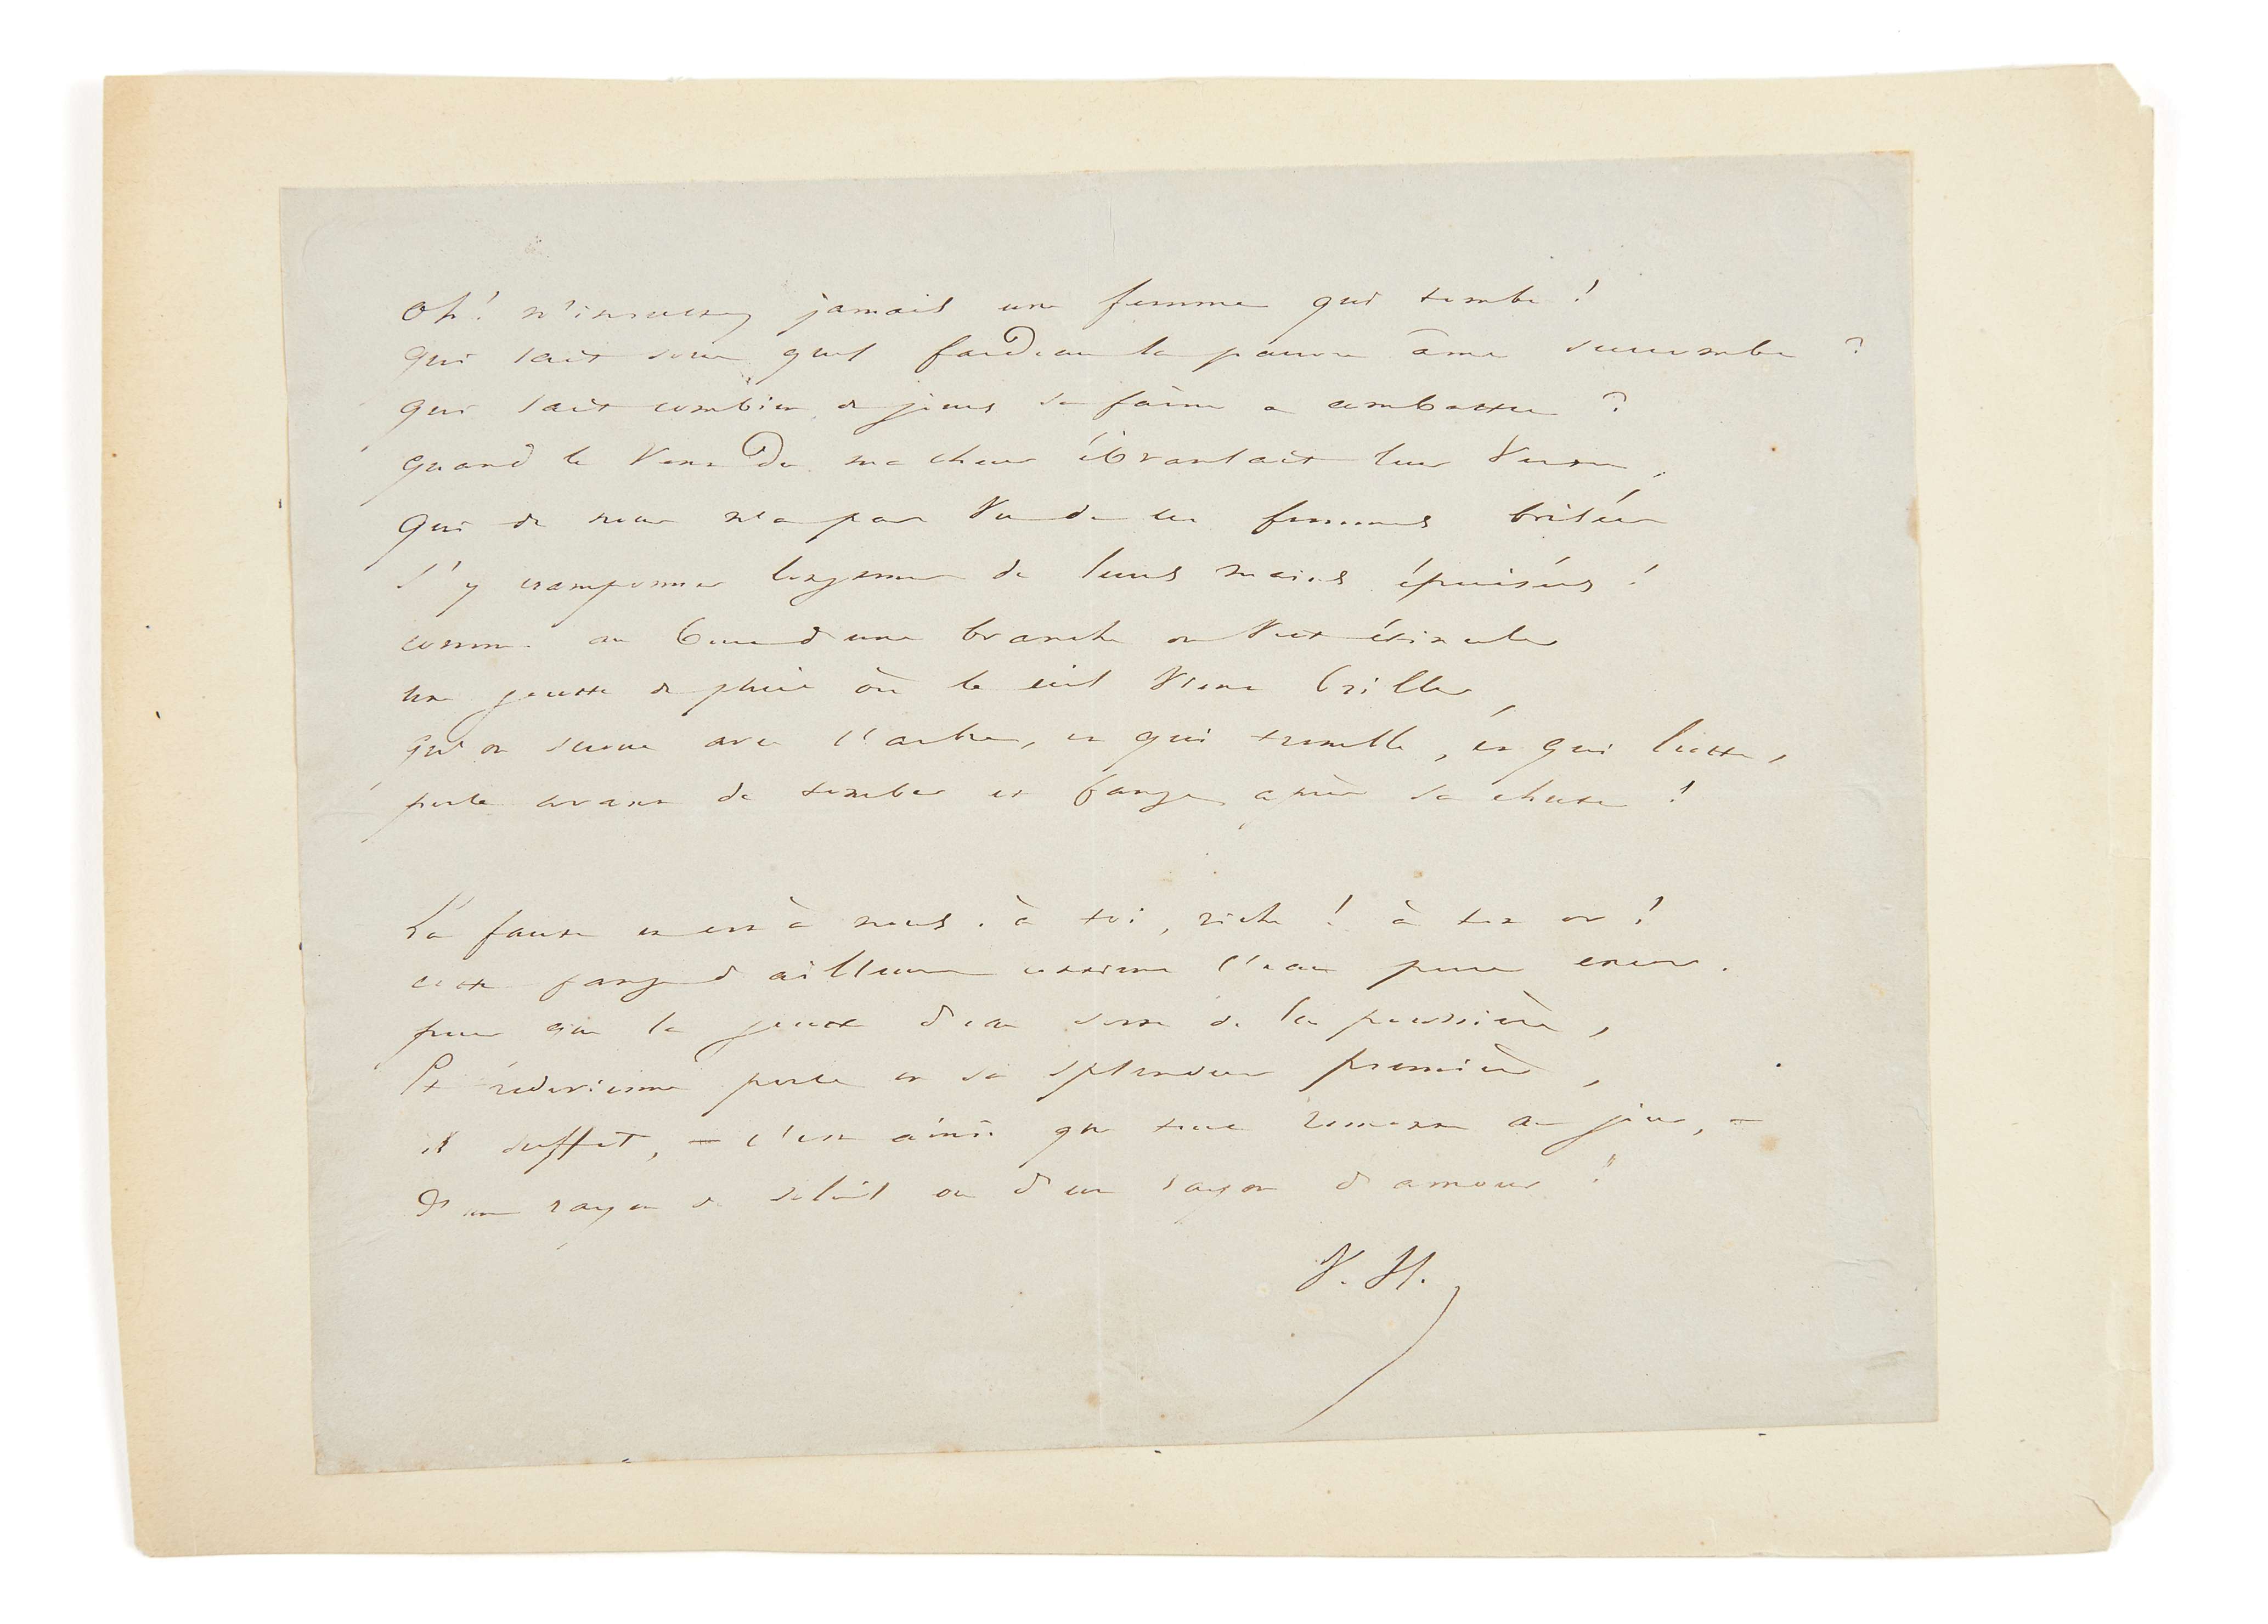 Oh! n'insultez jamais une femme qui tombe!
qui sait sous quel fardeau la pauvre âme succombe?
qui sait combien de jours sa faim a combattu?
quand le vent du malheur ébranlait leur vertu,
Qui de nous n'a pas vu de ces femmes brisées
S'y cramponner longtemps de leurs mains épuisées!
comme au bout d'une branche on voit étinceler
une goutte de pluie où le ciel vient briller,
qu'on secoue avec l'arbre, et qui tremble, et qui lutte,
perle avant de tomber et fange après sa chute!
La faute en est à nous. à toi, riche! à ton or!
cette fange d'ailleurs contient l'eau pure encor.
pour que la goutte d'eau sorte de la poussière,
Et redevienne perle en sa splendeur première,
il suffit, – c'est ainsi que tout remonte au jour, –
D'un rayon de soleil ou d'un rayon d'amour!
V. H.